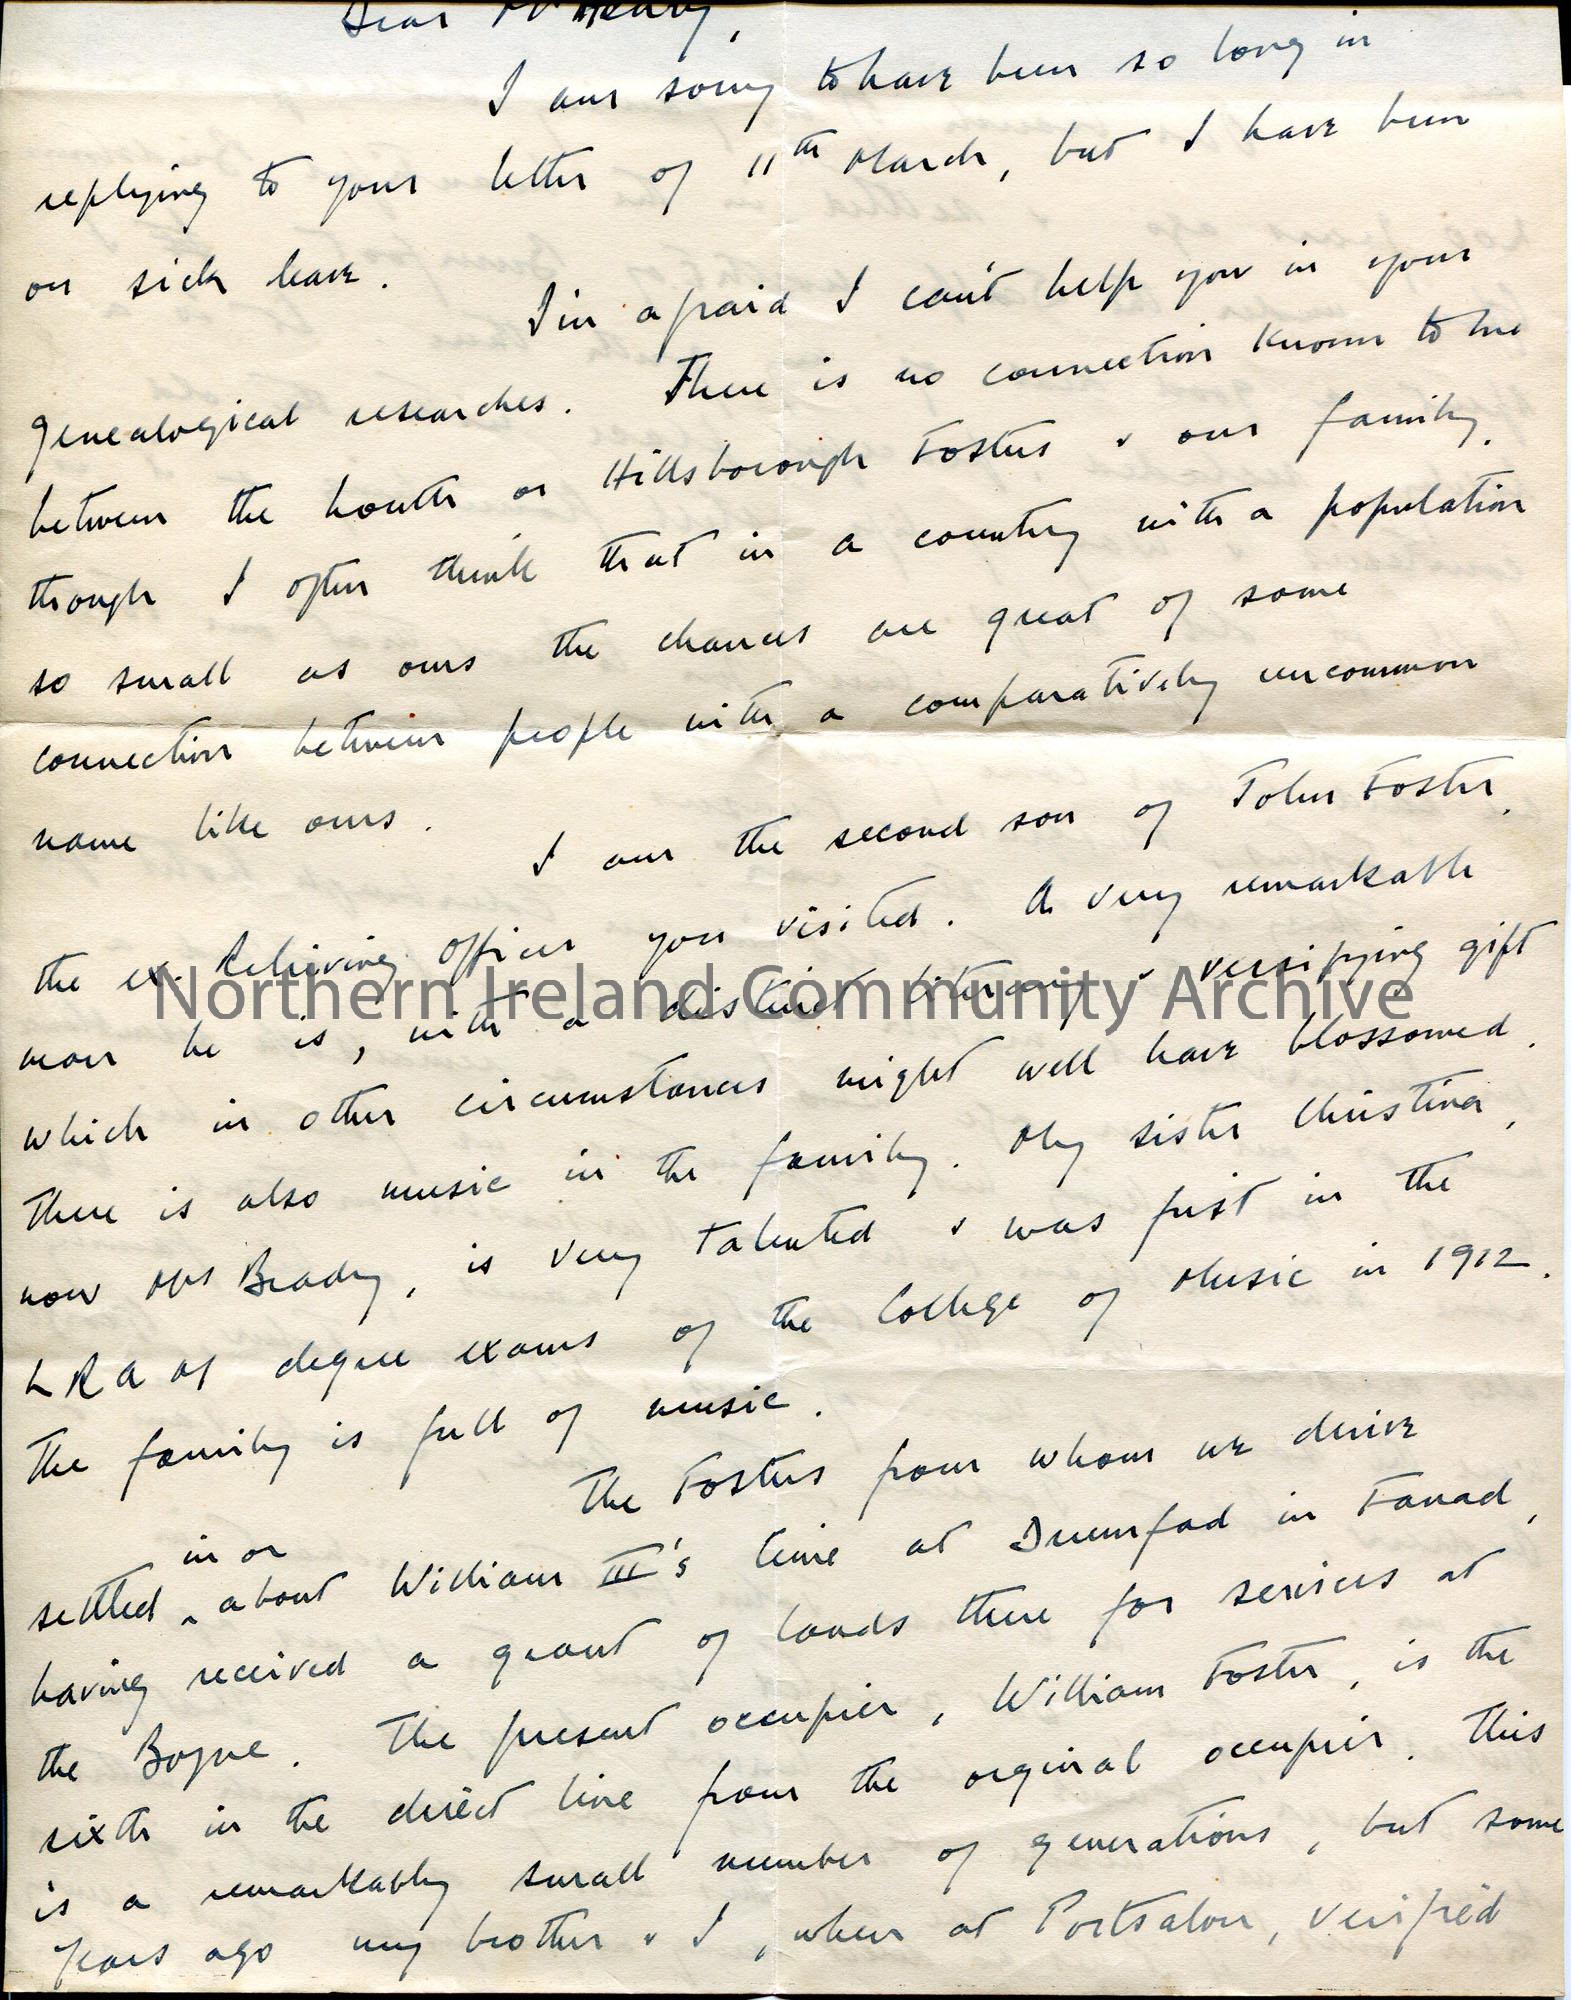 Dear Mr Henry,
I am sorry to have been so long in
replying to your letter of 11th March, but I have been
on sick leave.
I'm afraid I can't help you in your
genealogical researches. There is no connection known to me
between the louth or Hillsborough Fosters & our family,
though I often think that in a country with a population
so small as ours the chances are great of some
connection between people with a comparatively uncommon
name like ours.
I am the second son of John Foster,
the ex. Relieving Officer you visited. A very remarkable
man he is, with a distinct literary & versifying gift
which in other circumstances might well have blossomed.
There is also music in the family. My sister Christina,
now Mrs Brady, is very talented & was first in the
L R A M degree exams of the College of Music in 1912.
The family is full of music.
The Fosters from whom we derive
settled in or about William III's time at Drumfad in Fanad,
having received a grant of lands there for services at
the Boyne. The present occupier, William Foster, is the
sixth in the direct line from the orginal occupier. This
is a remarkably small number of generations, but some
years ago my brother & I, when at Portsalon, verified
Northern Ireland Community Archive